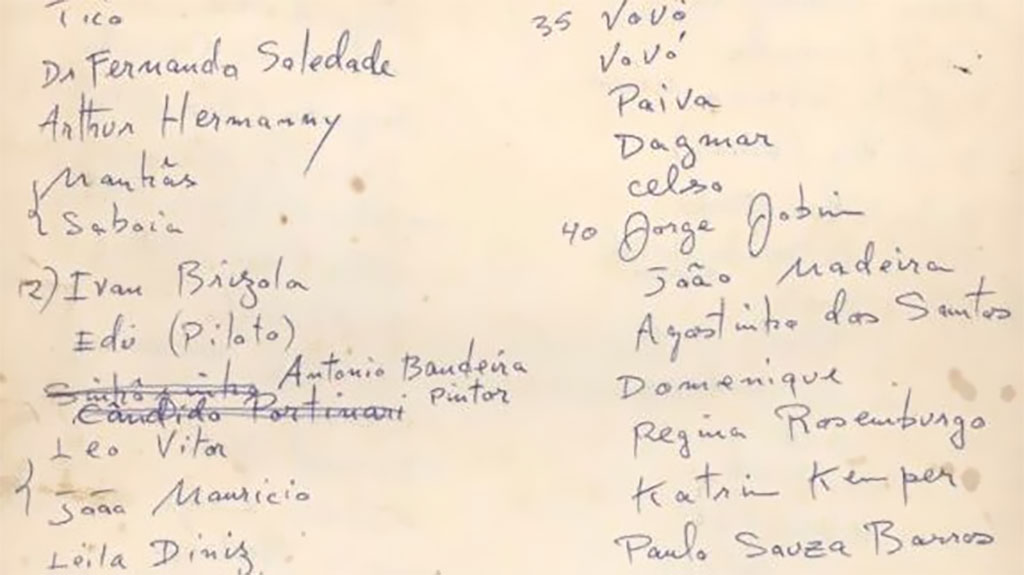 Tico
Dr Fernando Soledade
Arthur Hermanny
Manhãs
Saboia
12) Ivan Brizola
Edú (Piloto)
Antonio Bandeira
pintor
Cândido Portinari
Leo Vitor
João Mauricio
Leila Diniz
35 Vovô
Vovó
Paiva
Dagmar
Celso
40 Jorge Jobim
João Madeira
Agostinho dos Santos
Domenique
Regina Rosemburgo
Katrin Kemper
Paulo Souza Barros